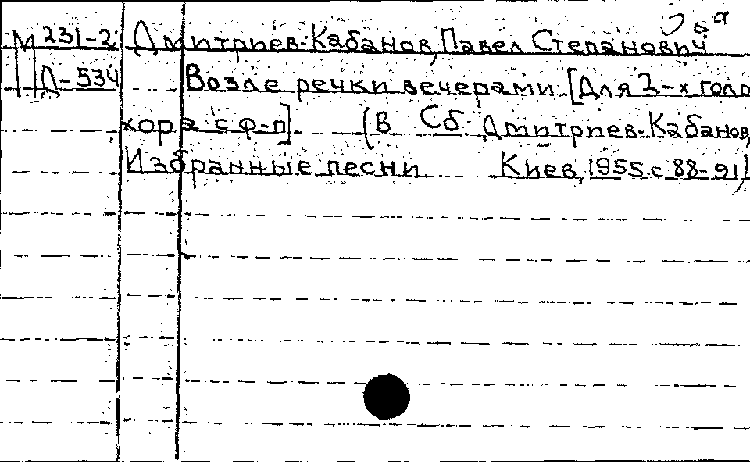 М 231-2 Дмитриев-Кабанов, Павел Степанович
Д-534 Возле речки вечерами [Для 2-х голо
хора с ф-п]. (В Сб Дмитриев-Кабанов,
Избранные песни Киев, 1955, с 88-91)